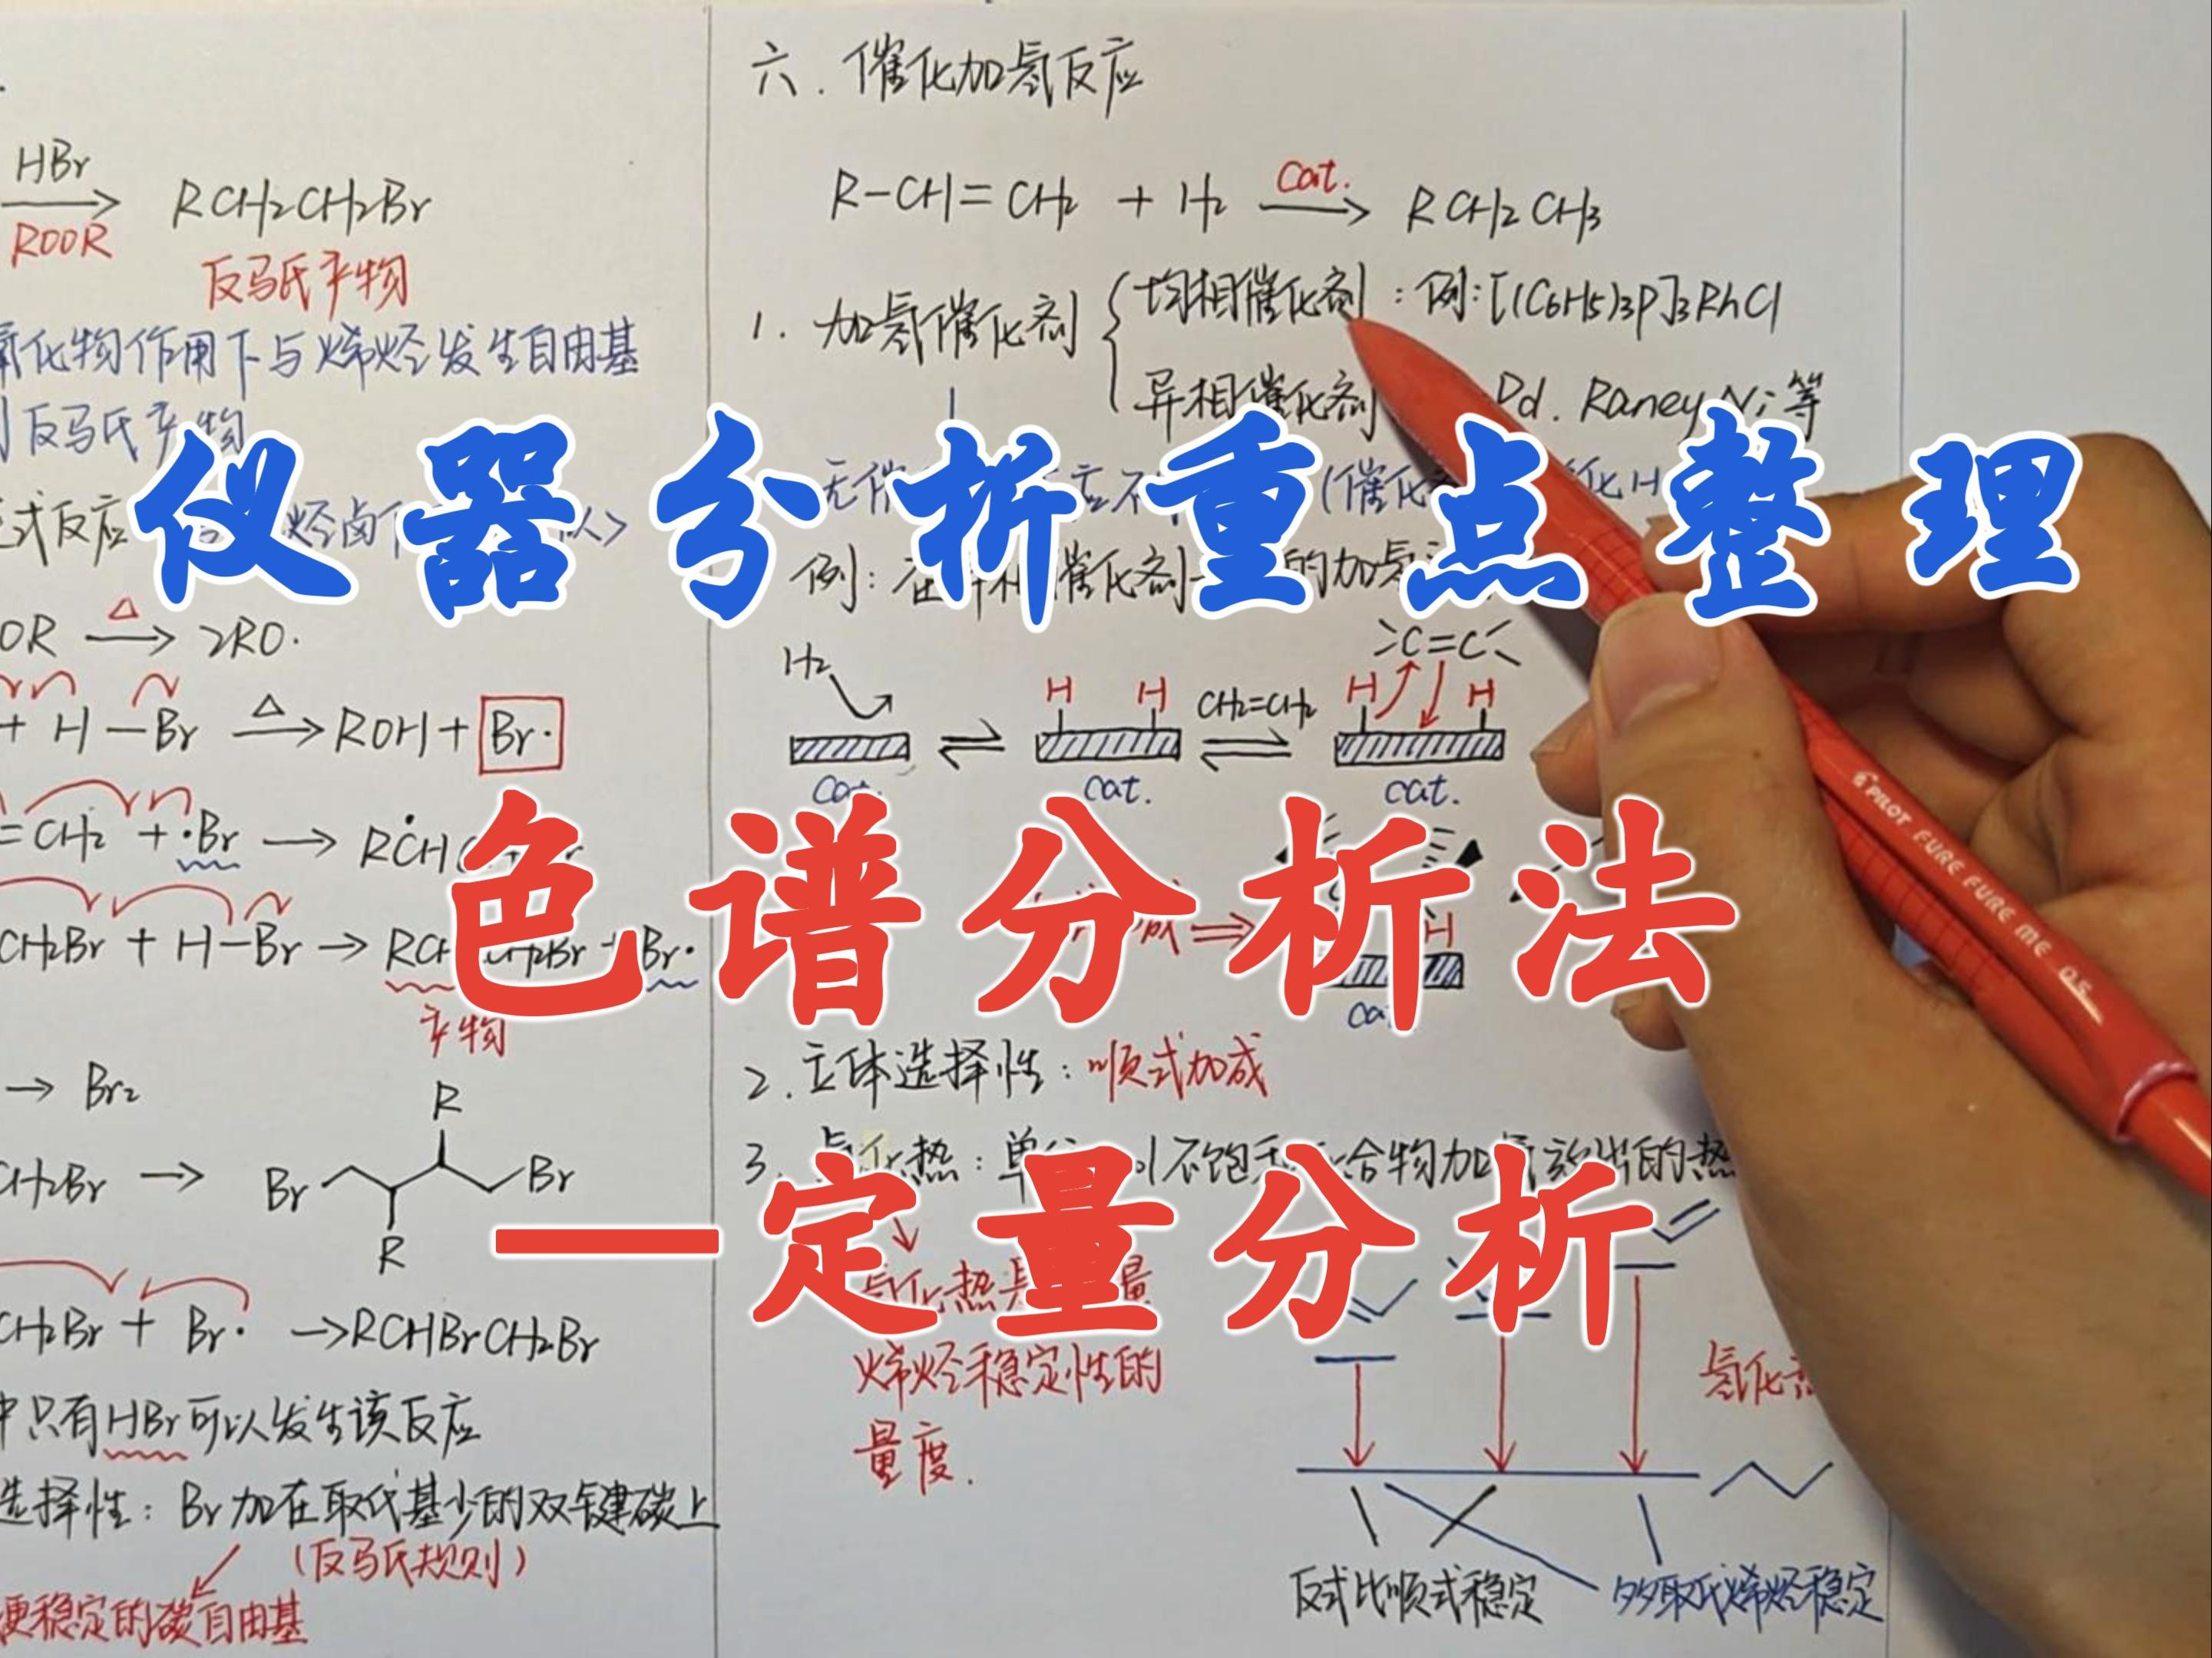 仪器分析重点整理
色谱分析法
—定量分析
HBr
ROOR
RCH₂CH₂Br
反马氏产物
氧化物作用下与烯烃发生自由基
反马氏产物
式反应
OR △ → 2RO·
+ H—Br △ → ROH + Br·
=CH₂ + ·Br → RĊHC
CH₂Br + H—Br → RCH CH₂Br + Br·
产物
→ Br₂
CH₂Br →
Br
R
R
Br
CH₂Br + Br· → RCHBrCH₂Br
中只有HBr可以发生该反应
选择性：Br加在取代基少的双键碳上
（反马氏规则）
更稳定的碳自由基
六．催化加氢反应
R-CH=CH₂ + H₂ cat. → RCH₂CH₃
1. 加氢催化剂
均相催化剂：例：[(C₆H₅)₃P]₃RhCl
异相催化剂 Pd. Raney Ni 等
无催 应不 (催化 化H
例：在 相催化剂 的加氢
H₂
H H
CH₂=CH₂
C=C
H H
cat.
cat.
H
2. 立体选择性：顺式加成
3. 热：单 不饱 合物加 放出的热
烯烃稳定性的
量度.
反式比顺式稳定
多取代烯烃稳定
PILOT FURE FURE ME 0.5